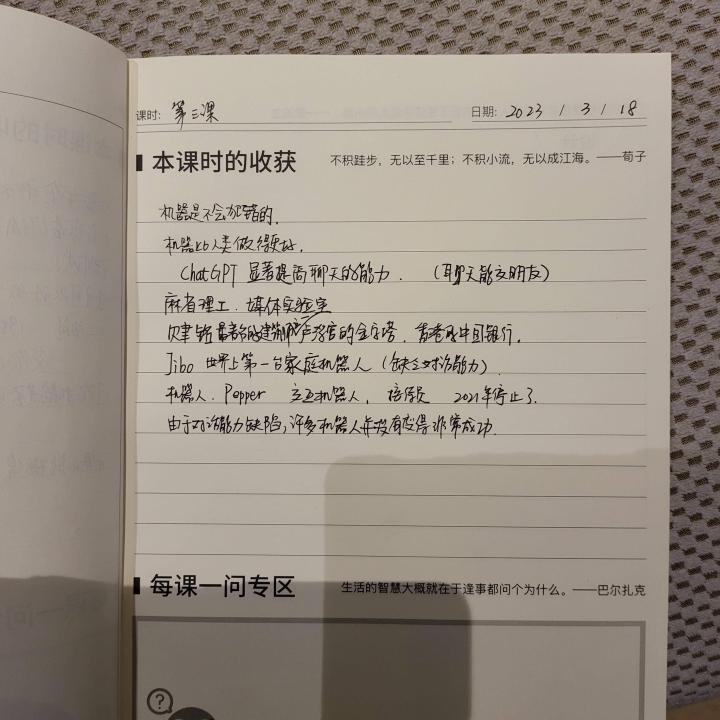 课时: 第三课
日期: 2023 / 3 / 18
本课时的收获
不积跬步，无以至千里；不积小流，无以成江海。——荀子
机器是不会犯错的.
机器比人类做得更好.
ChatGPT 显著提高聊天的能力. (聊天能交朋友)
麻省理工. 媒体实验室
贝聿铭 最著名的建筑 卢浮宫的金字塔. 香港中国银行.
Jibo 世界上第一台家庭机器人 (缺乏对话能力).
机器人. Pepper 交互机器人, 2021年停止了.
由于对话能力缺陷, 许多机器人并没有变得非常成功.
每课一问专区
生活的智慧大概就在于逢事都问个为什么。——巴尔扎克
?